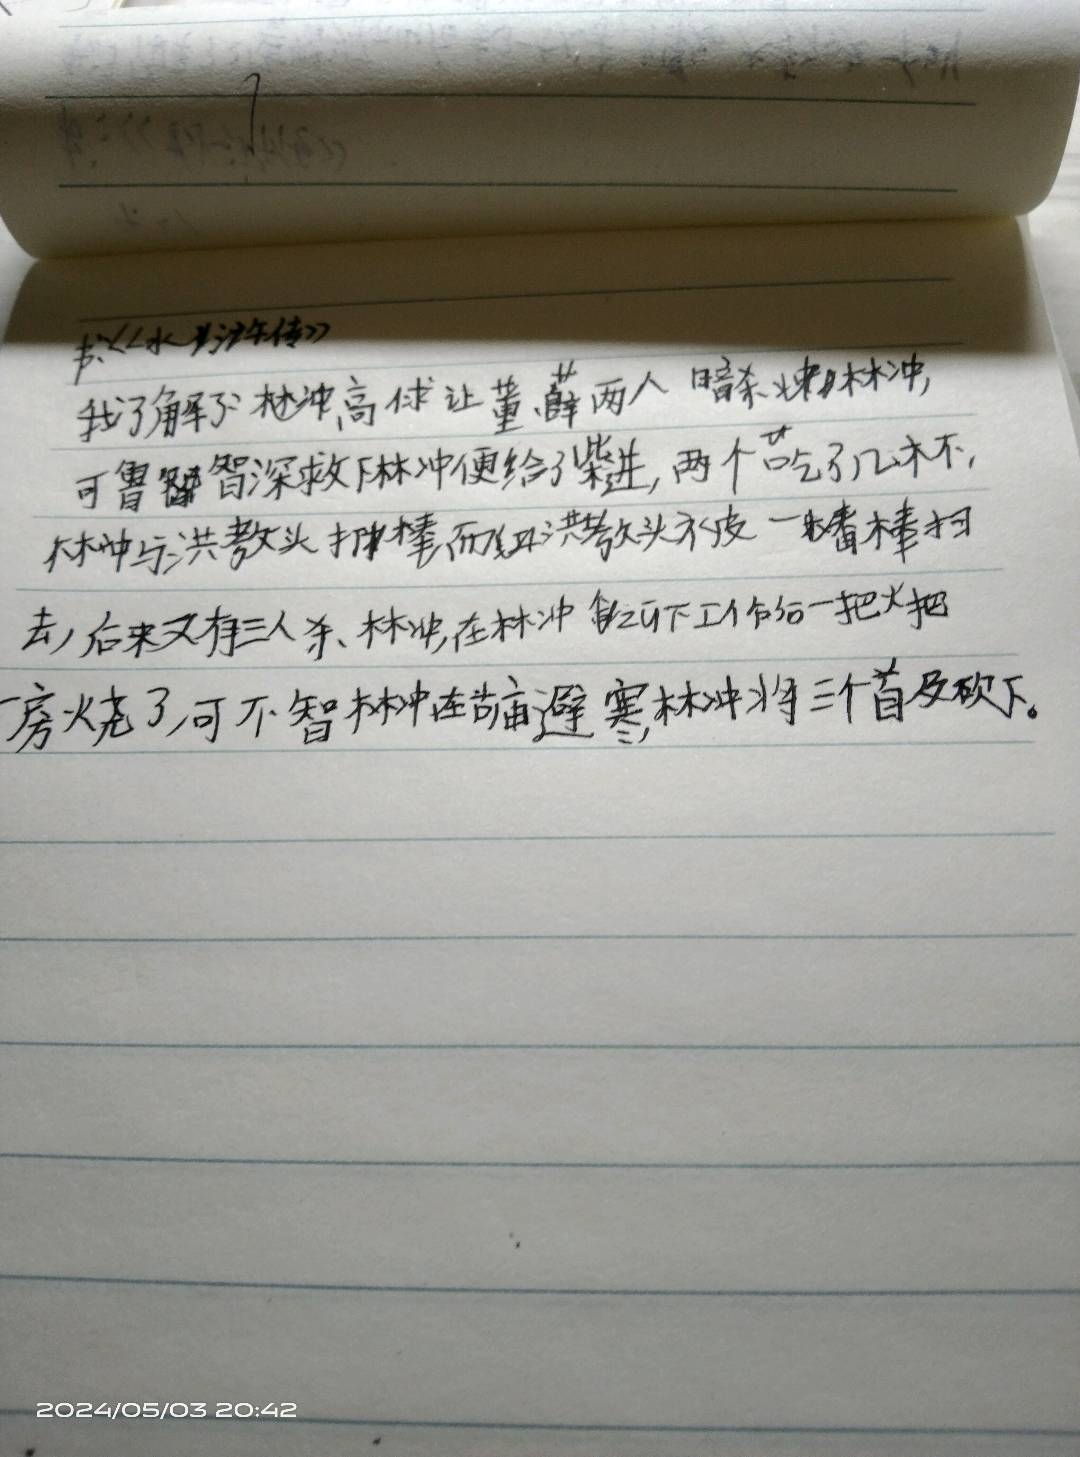 书《水浒传》
我了解了林冲,高俅让董、薛两人暗杀林冲,
可鲁智深救下林冲便给了柴进,两个吃了几
林冲与洪教头棒,而洪教头被一棒扫
去,后来又有三人杀、林冲,在林冲下工作给一把火把
房烧了,可不智林冲在古庙避寒,林冲将三个首及砍下。
2024/05/03 20:42